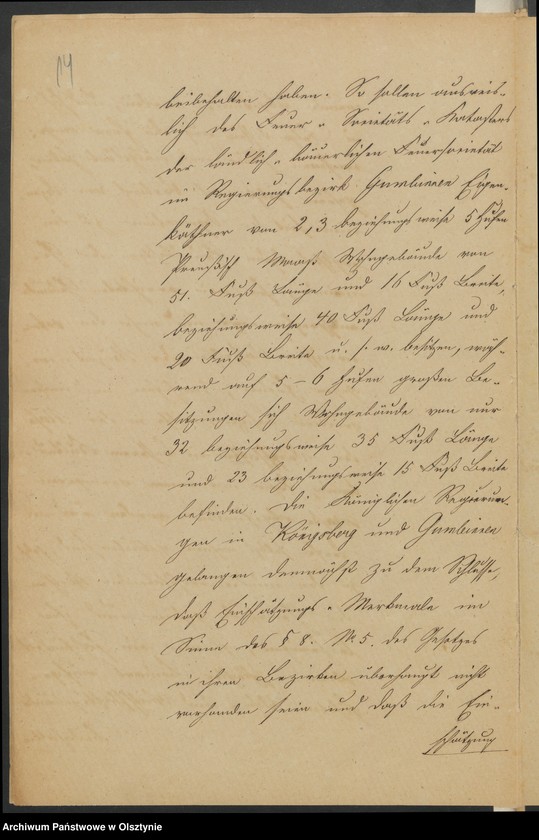 14
beibehalten haben. So sollen ausweis-
lich des Feuer-Societäts-Katasters
der ländlich-bäuerlichen Feuersocietät
im Regierungsbezirk Gumbinnen Eigen-
käthner von 2, 3 beziehungsweise 5 Hufen
Preußisch Maaß Wohngebäude von
51. Fuß Länge und 16 Fuß Breite,
beziehungsweise 40 Fuß Länge und
20 Fuß Breite u. s. w. besitzen, wäh-
rend auf 5-6 Hufen großen Be-
sitzungen sich Wohngebäude von nur
32 beziehungsweise 35 Fuß Länge
und 23 beziehungsweise 15 Fuß Breite
befinden. Die Königlichen Regierun-
gen in Königsberg und Gumbinnen
gelangen demnächst zu dem Schlusse,
daß Einschätzungs-Merkmale im
Sinne des § 8. № 5. des Gesetzes
in ihren Bezirken überhaupt nicht
vorhanden seien und daß die Ein-
schätzung
Archiwum Państwowe w Olsztynie